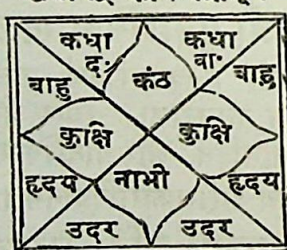 कधा कधा
द: कंठ वा॰
बाहु बाहु
कुक्षि कुक्षि
हृदय नाभी हृदय
उदर उदर